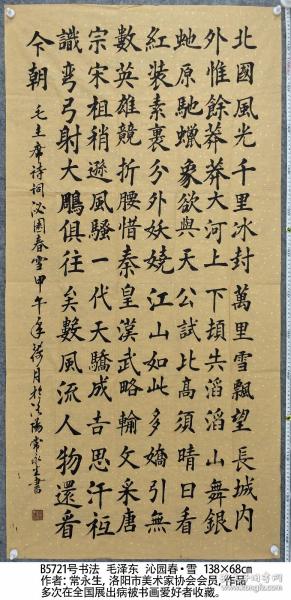 北國風光千里冰封萬里雪飄望長城内
外惟餘莽莽大河上下頓失滔滔山舞銀
虵原馳蠟象欲與天公試比高須晴日看
紅裝素裹分外妖嬈江山如此多嬌引無
數英雄競折腰惜秦皇漢武略輸文采唐
宗宋祖稍遜風騷一代天驕成吉思汗祗
識彎弓射大鵰俱往矣數風流人物還看
今朝
毛主席詩詞沁園春雪甲午年荷月於洛陽常永生書
B5721号书法 毛泽东 沁园春·雪 138×68cm
作者: 常永生, 洛阳市美术家协会会员, 作品
多次在全国展出病被书画爱好者收藏。